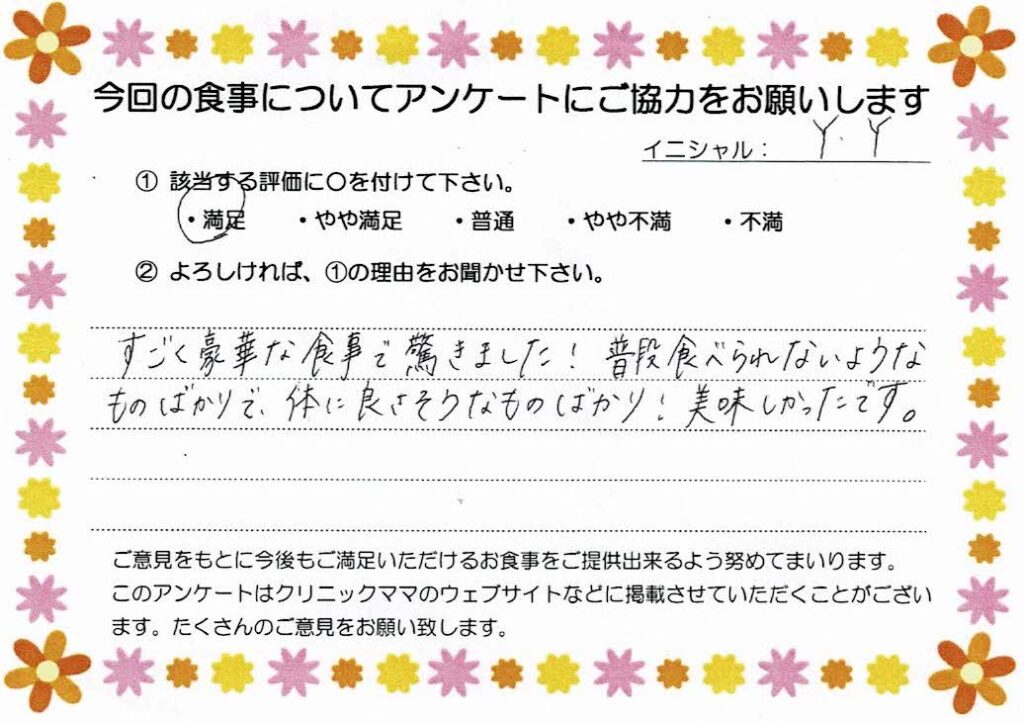 今回の食事についてアンケートにご協力をお願いします
イニシャル： Y．Y
① 該当する評価に〇を付けて下さい。
・満足 ・やや満足 ・普通 ・やや不満 ・不満
② よろしければ、①の理由をお聞かせ下さい。
すごく豪華な食事で驚きました！普段食べられないような
ものばかりで、体に良さそうなものばかり！美味しかったです。
ご意見をもとに今後もご満足いただけるお食事をご提供出来るよう努めてまいります。
このアンケートはクリニックママのウェブサイトなどに掲載させていただくことがござい
ます。たくさんのご意見をお願い致します。